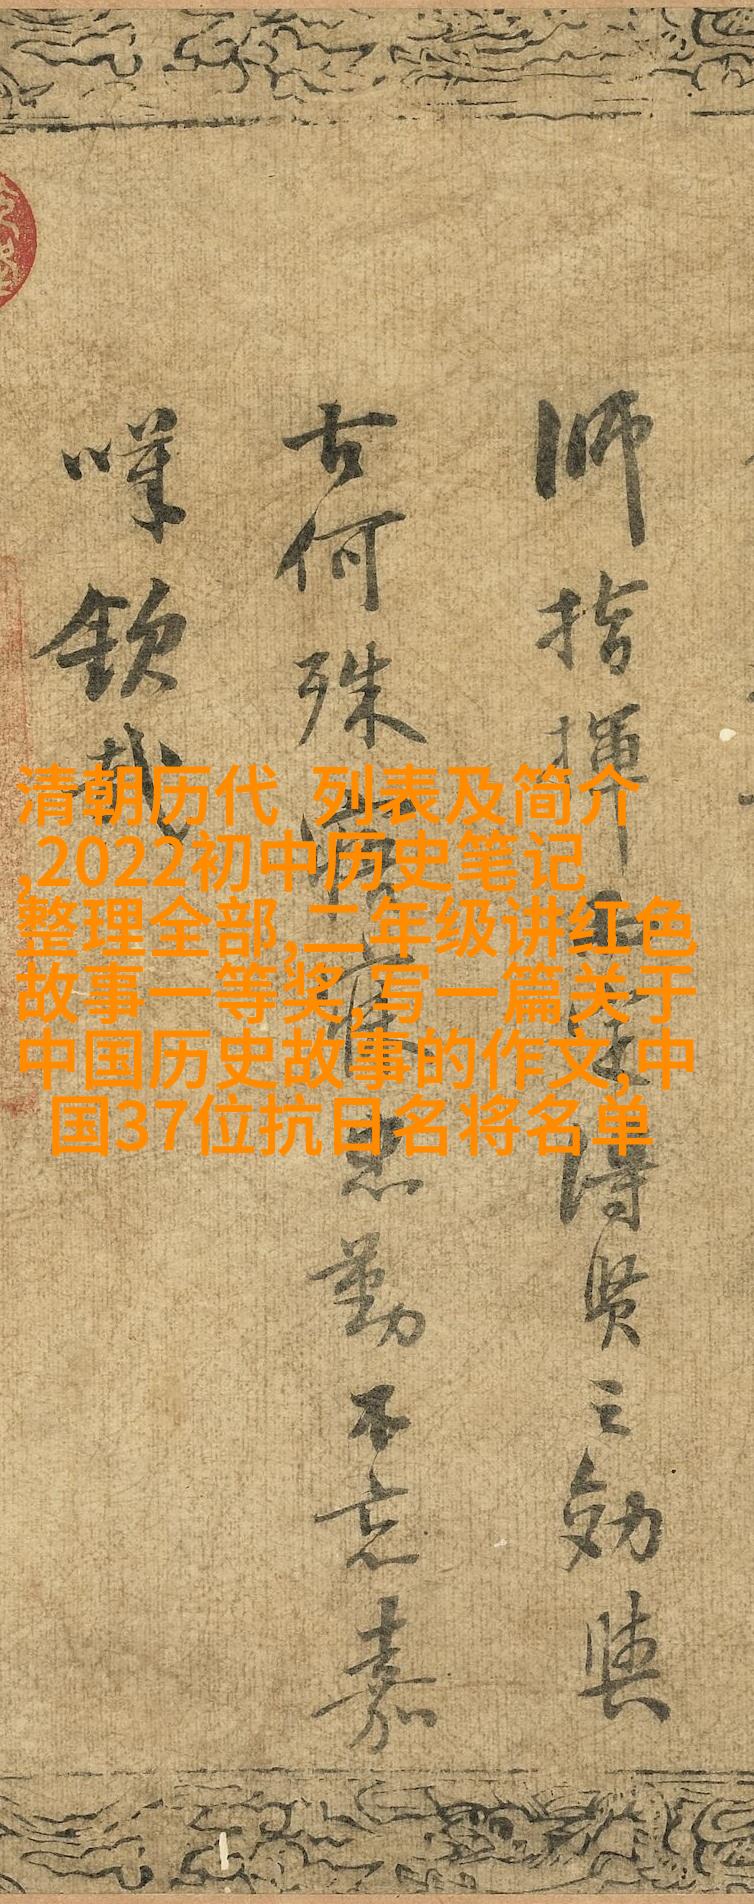 師指揮而定得賢之効與
古何殊寤寐忠勤不忘嘉
嘆欽哉
清朝历代 列表及简介
,2022初中历史笔记
整理全部,二年级讲红色
故事一等奖,写一篇关于
中国历史故事的作文,中
国37位抗日名将名单